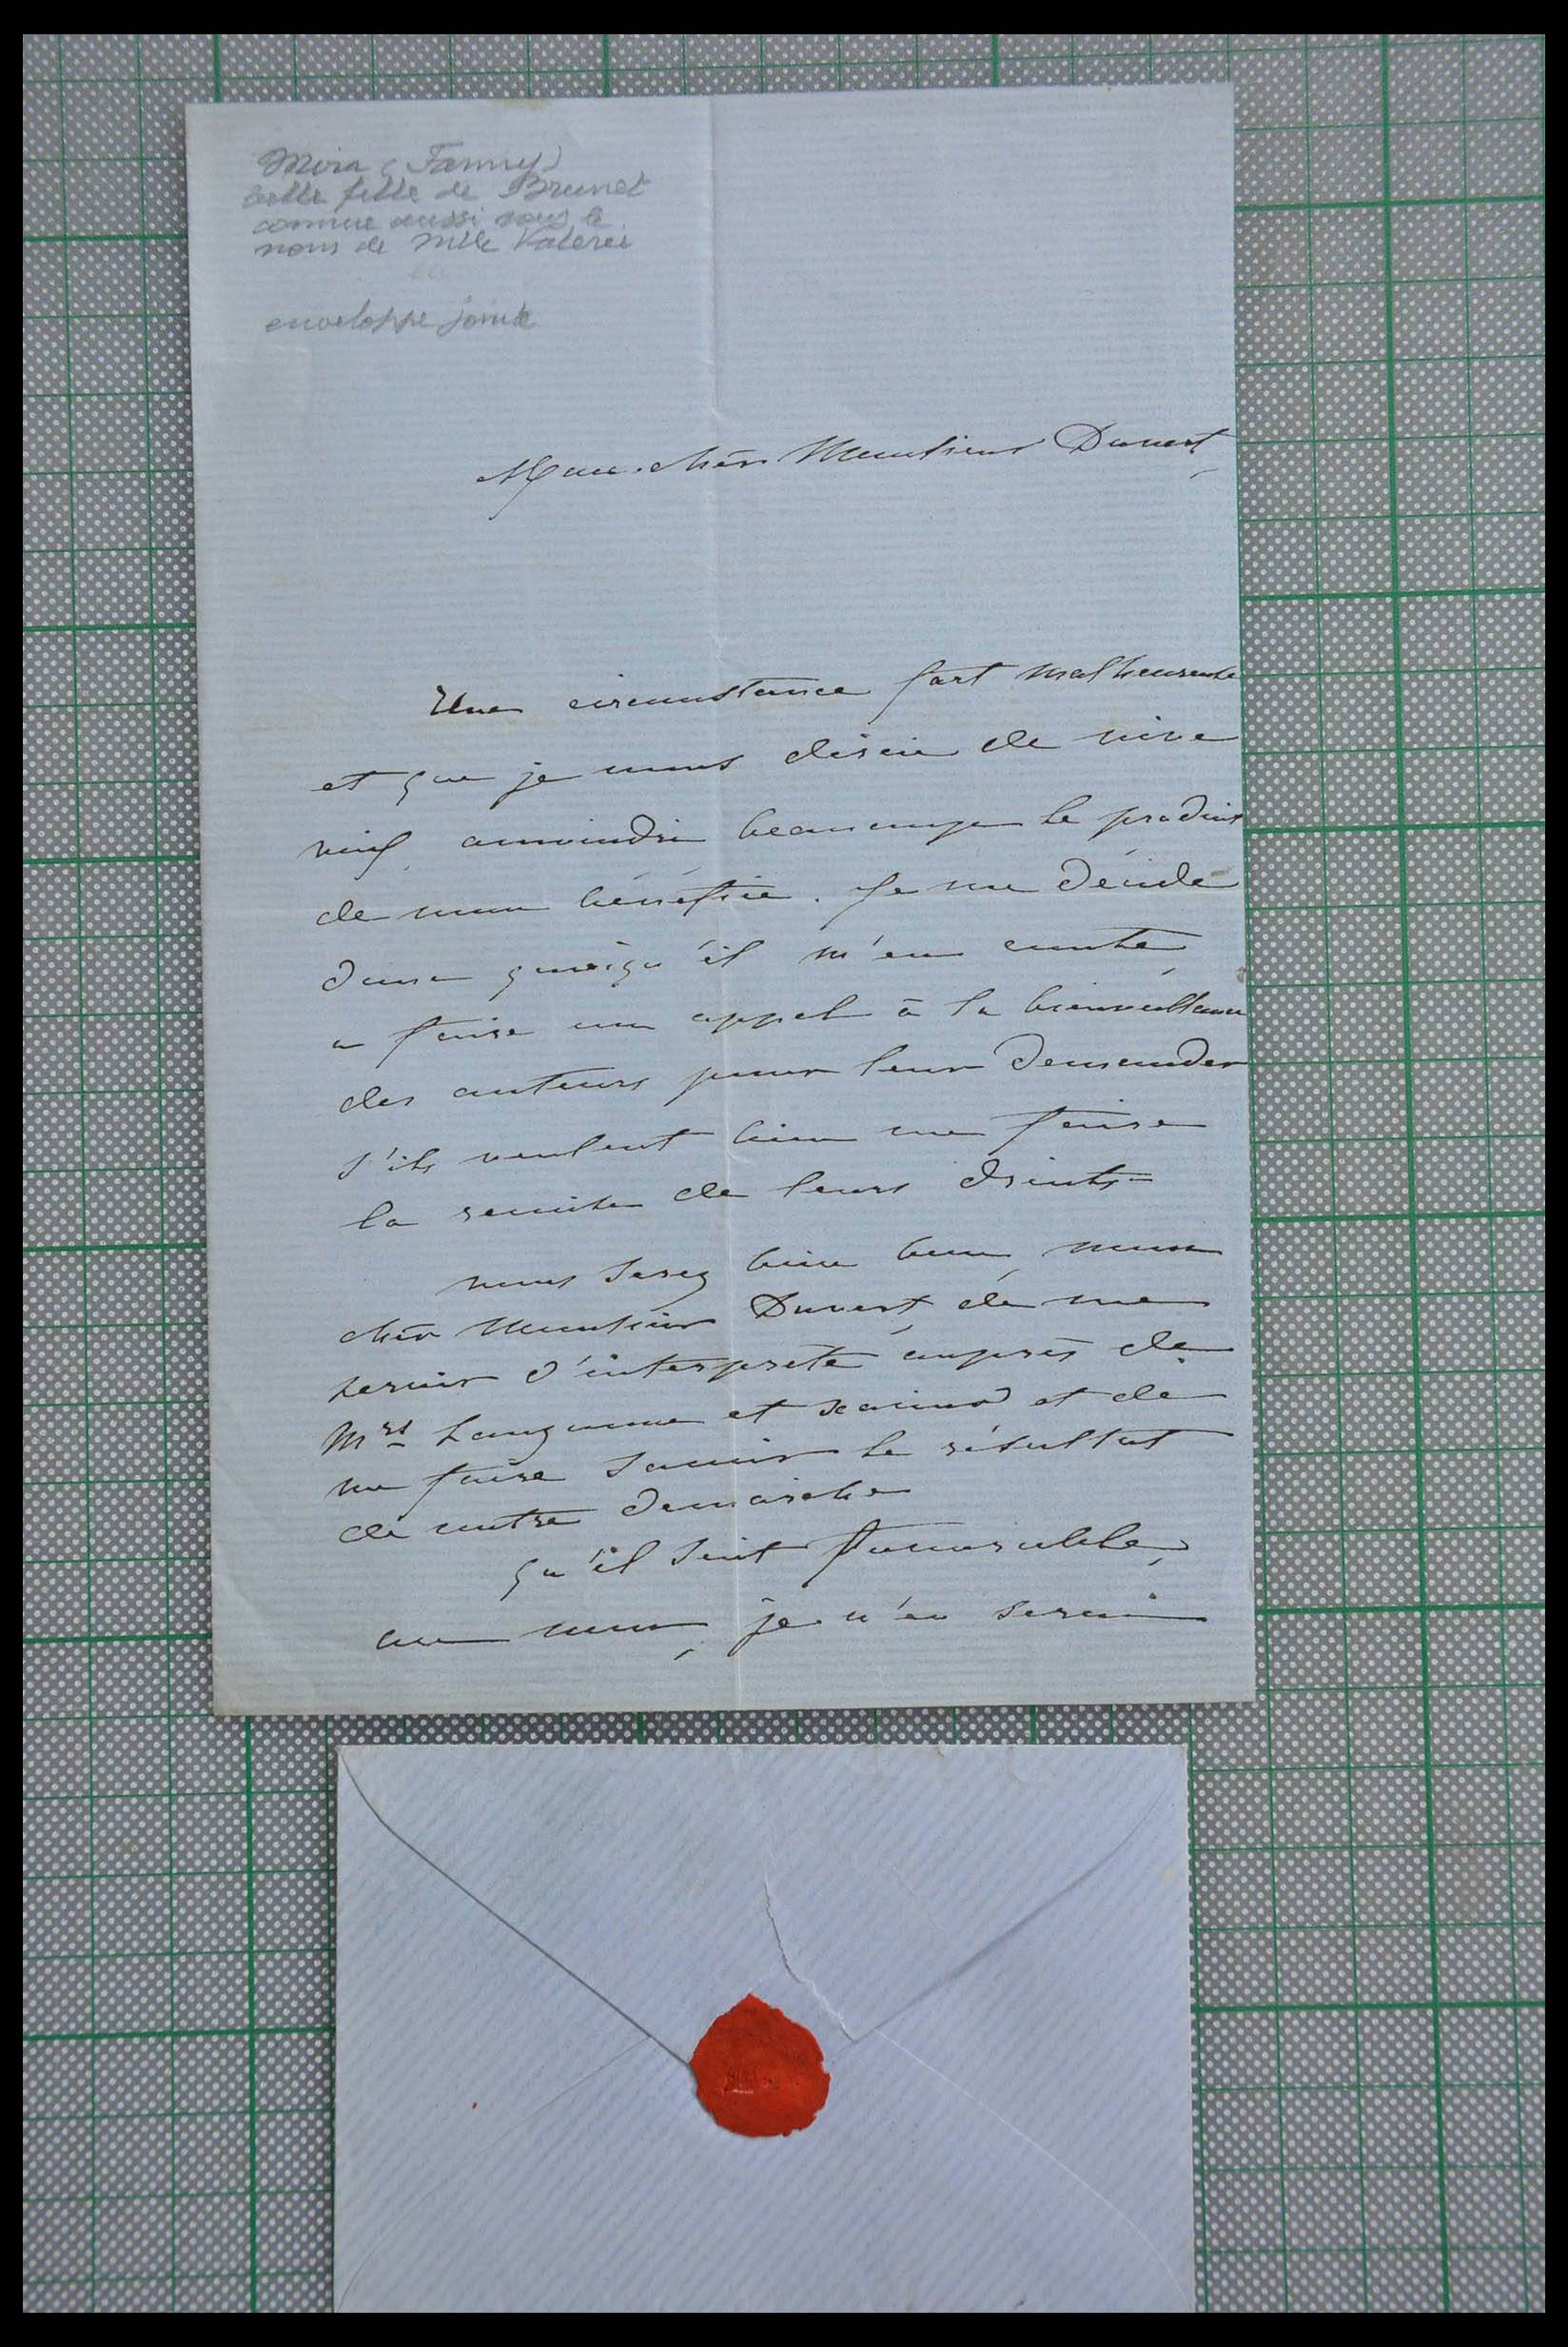 Mira (Fanny)
belle fille de Brunet
connue aussi sous le
nom de Mlle Valerie
enveloppe jointe
Mon cher Monsieur Duvert,
Une circonstance fort malheureuse
et que je vous dirai de vive
voix amoindri beaucoup le produit
de mon bénéfice. Je me décide
donc quoiqu'il m'en coute,
a faire un appel à la bienveillance
des auteurs pour leur demander
s'ils veulent bien me faire
la remise de leurs droits
vous serez bien bon, mon
cher Monsieur Duvert, de me
servir d'interprète auprès de
Mrs Lauzanne et et de
me faire savoir le résultat
de votre demarche
qu'il soit favorable,
ou non, je n'en serai